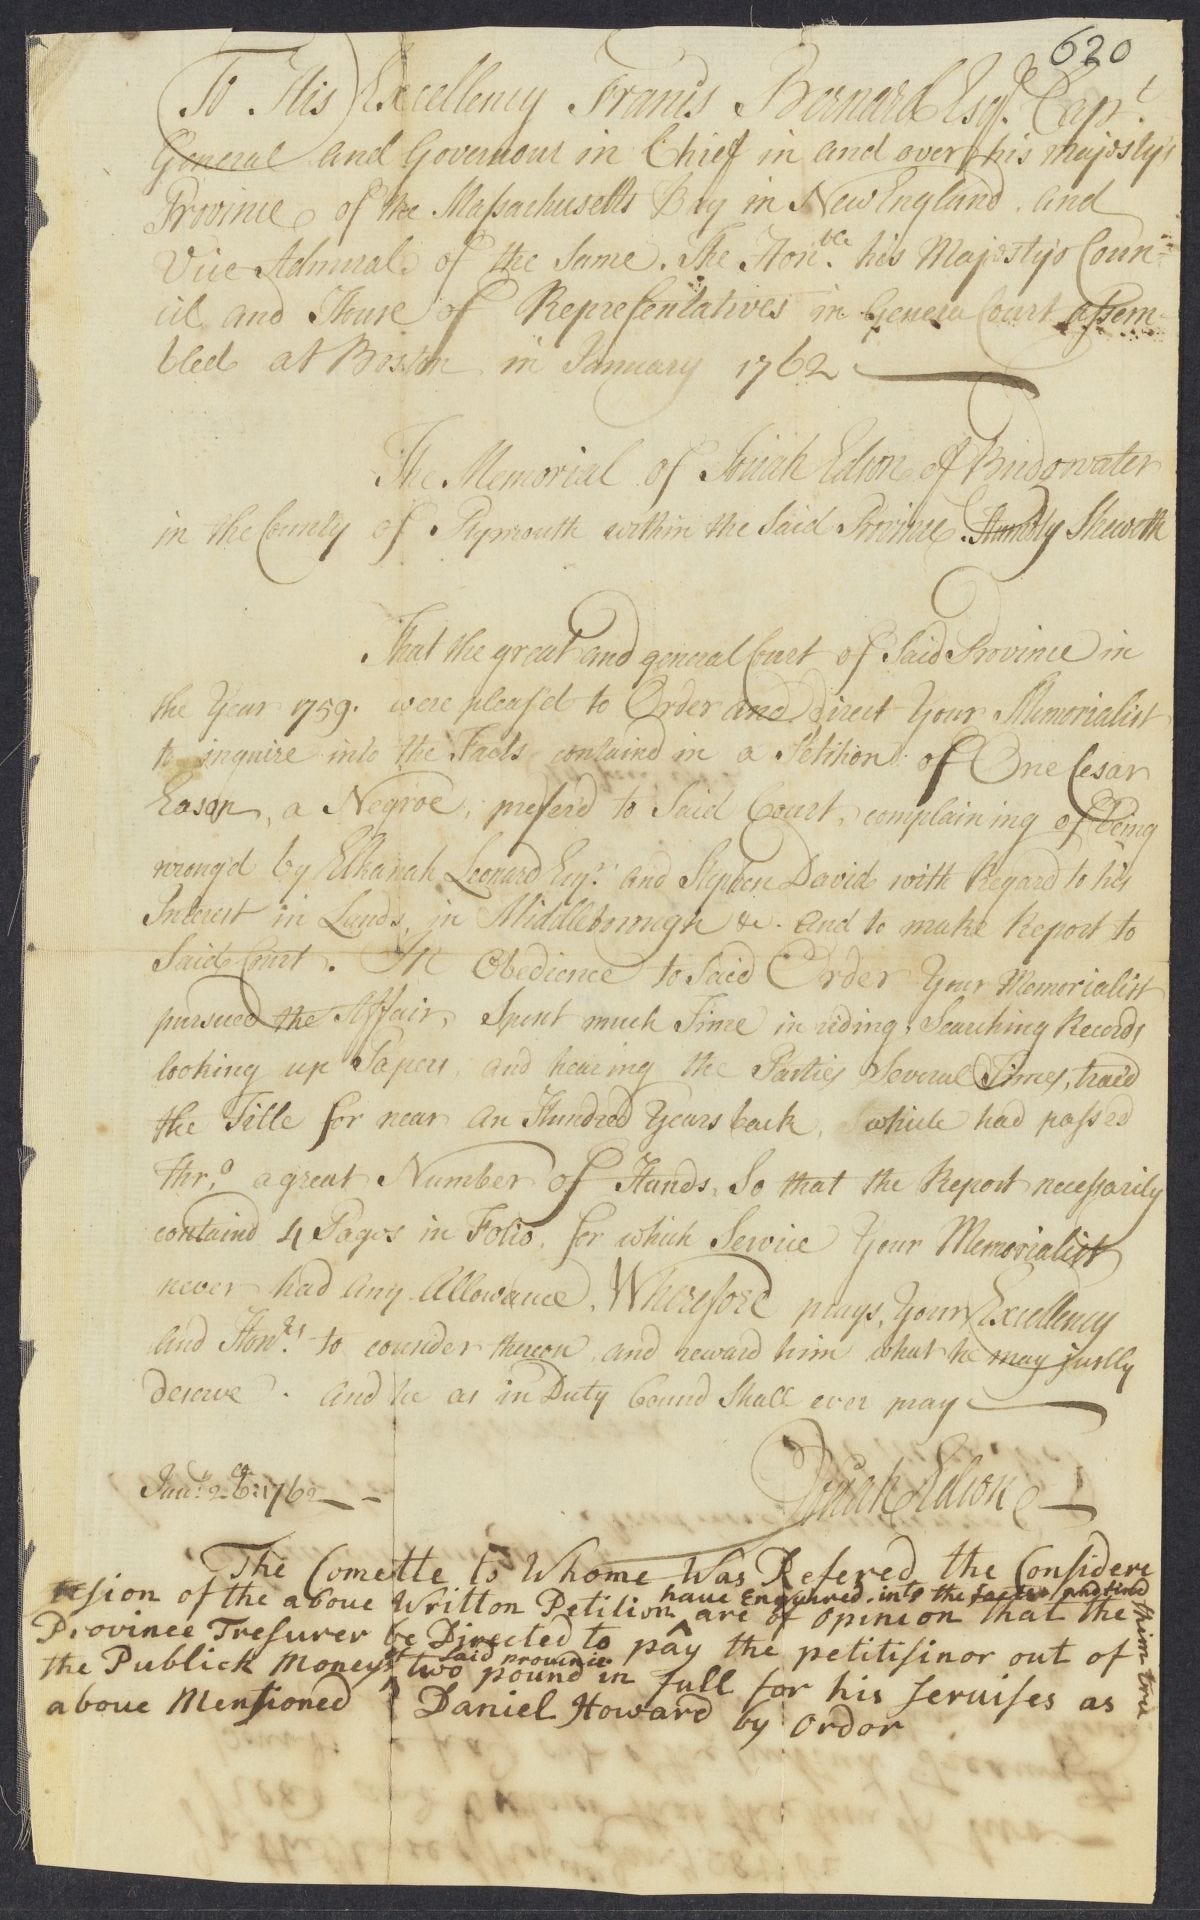 620
To His Excellency Francis Bernard Esqr. Capt.
General and Governour in Chief in and over his majesty's
Province of the Massachusetts Bay in New England and
Vice Admiral of the Same. The Honble. his Majesty's Coun=
cil and House of Representatives in General Court assem-
bled at Boston in January 1762
The Memorial of Josiah Edson of Bridgwater
in the County of Plymouth within the Said Province Humbly Sheweth
That the great and general Court of Said Province in
the Year 1759. were pleased to Order and direct Your Memorialist
to inquire into the Facts containd in a Petition of One Cesar
Eason, a Negroe, prefer'd to Said Court, complaining of being
wrong'd by Elkanah Leonard Esqr. and Stephen David with Regard to his
Interest in Lands, in Middleborough &c. and to make Report to
Said Court. In Obedience to Said Order Your Memorialist
pursued the Affair, Spent much Time in riding, Searching Records,
looking up Papers, and hearing the Parties Several Times, trac'd
the Title for near an Hundred Years back, which had passed
thro. a great Number of Hands, So that the Report necessarily
containd 4 Pages in Folio, for which Service Your Memorialist
never had any Allowance. Wherefore prays, Your Excellency
and Honrs. to consider thereon, and reward him what he may justly
deserve. And he as in Duty bound Shall ever pray
Janr. 26: 1762
Josiah Edson
The Comette to Whome Was Refered the Considere
resion of the aboue Written Petition have Enquired into the facts and find them true
are of opinion that the
Province Tresurer be Directed to pay the petitisinor out of
the Publick Money of said province two pound in full for his seruises as
aboue Mensioned Daniel Howard by ordor